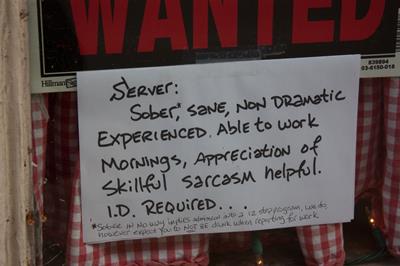 WANTED
Hillman
839894
03-6150-018
SERVER:
SOBER,* SANE, NON DRAMATIC
EXPERIENCED. ABLE TO WORK
MORNINGS, APPRECIATION OF
SKILLFUL SARCASM HELPFUL.
I.D. REQUIRED...
*SOBER IN NO WAY IMPLIES ADMISSION INTO A 12 STEP PROGRAM, WE DO,
HOWEVER EXPECT YOU TO NOT BE DRUNK WHEN REPORTING FOR WORK